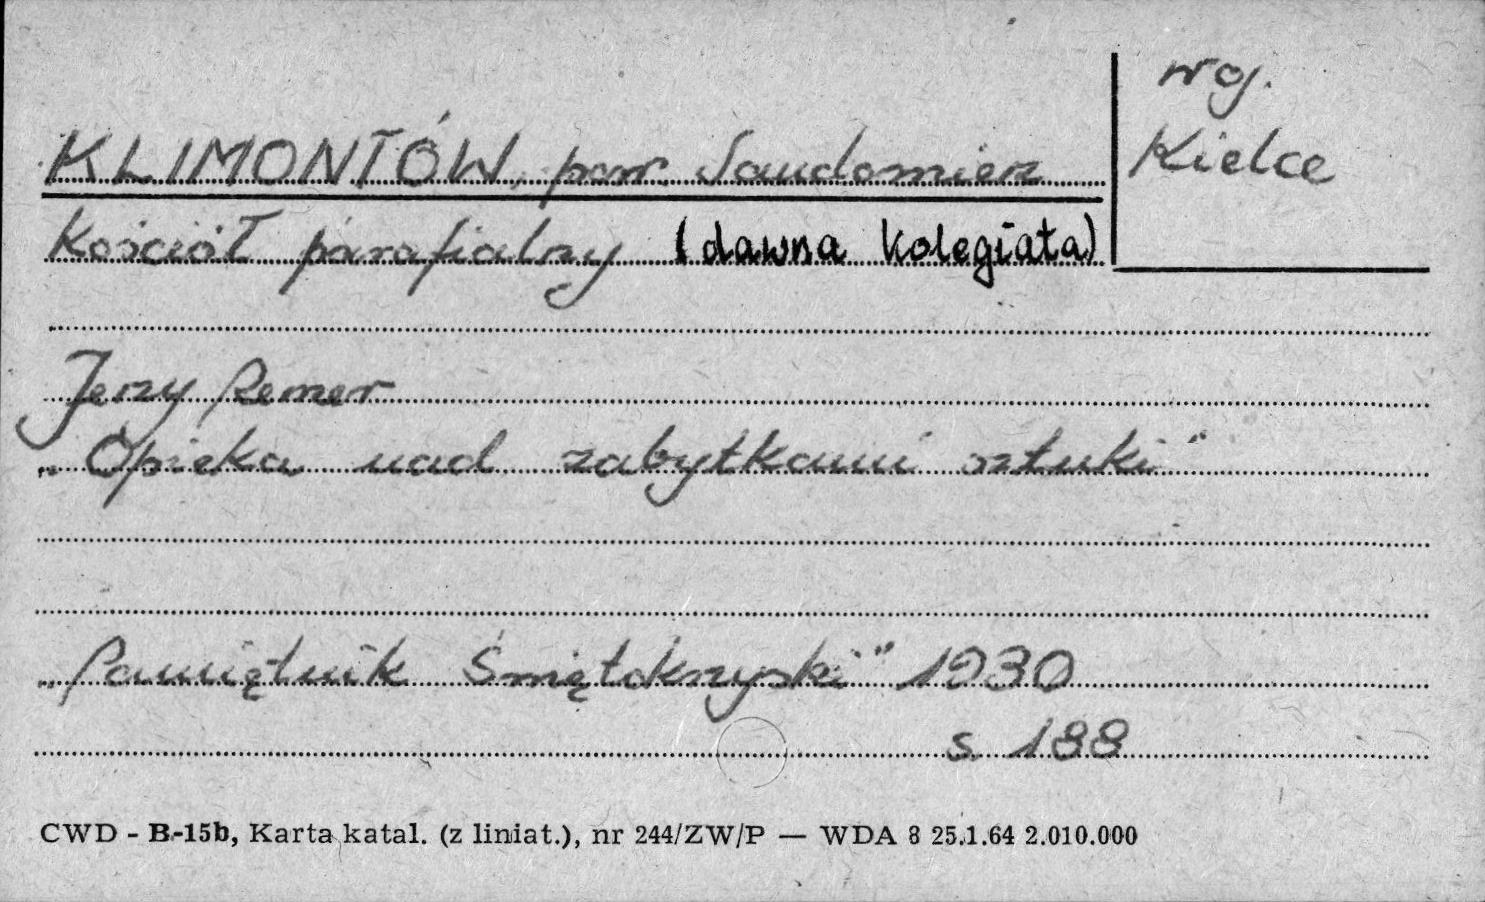 woj.
KLIMONTÓW, pow. Sandomierz
Kielce
Kościół parafialny (dawna kolegiata)
Jerzy Remer
„Opieka nad zabytkami sztuki"
„Pamiętnik Świętokrzyski" 1930
s. 188
CWD - B-15b, Karta katal. (z liniat.), nr 244/ZW/P — WDA 8 25.1.64 2.010.000